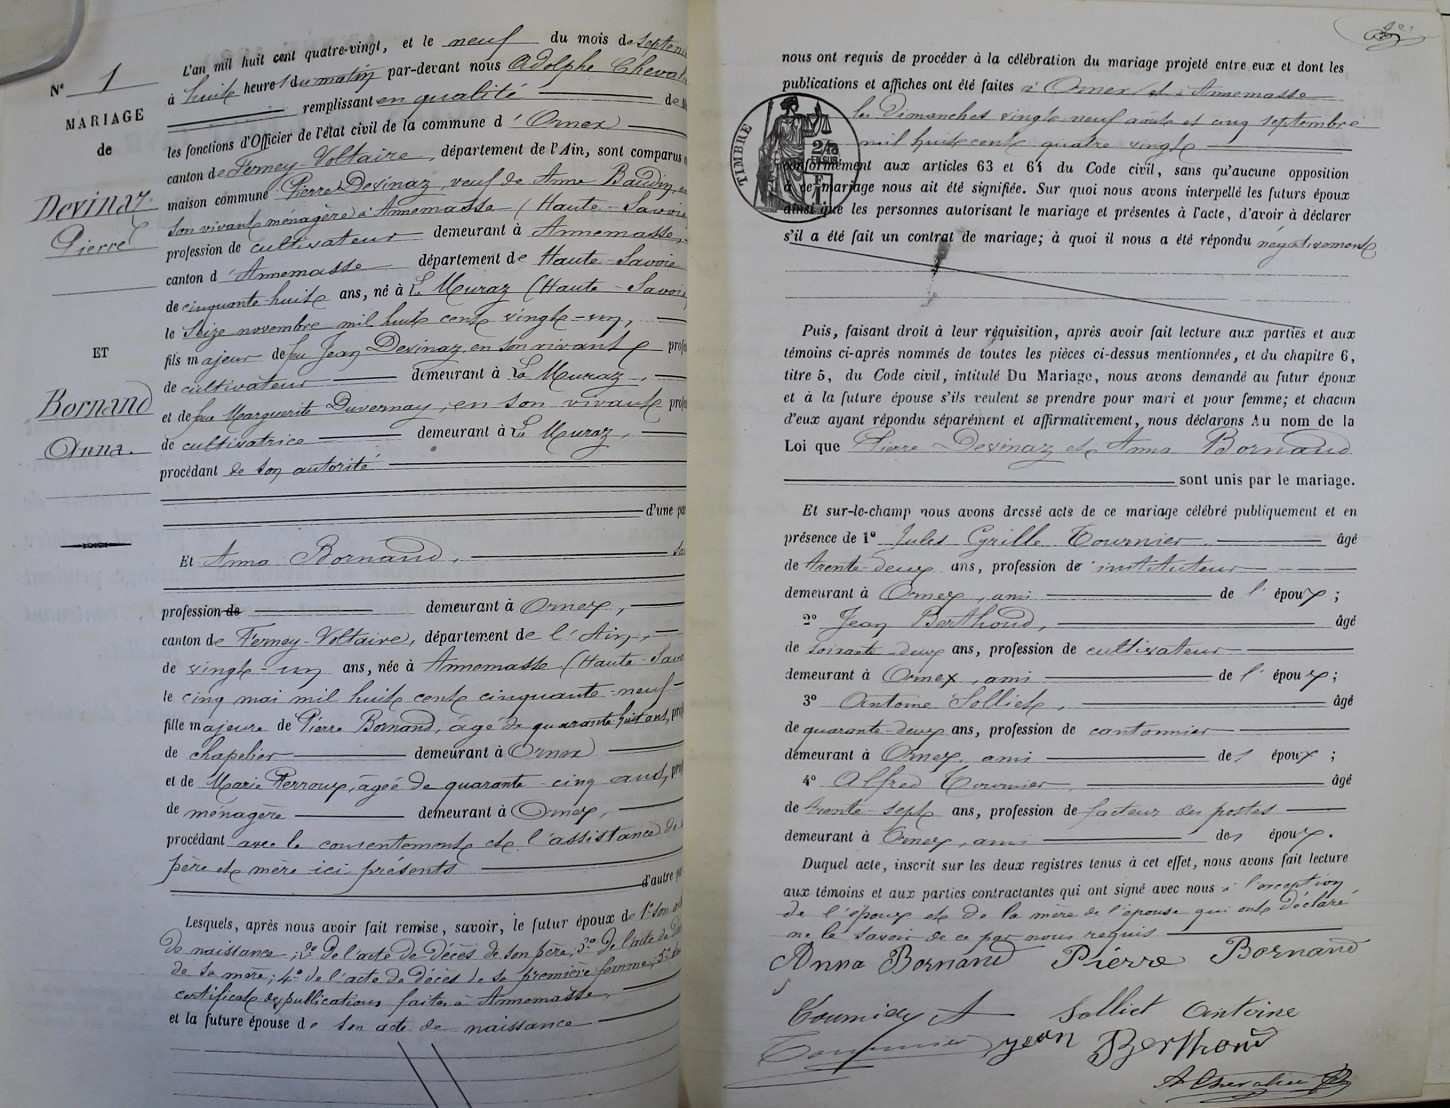 N° 1
MARIAGE
de
Devinaz
Pierre
ET
Bornand
Anna.
L'an mil huit cent quatre-vingt, et le neuf du mois de septem
à huit heures du matin par-devant nous Adolphe Cheval
remplissant en qualité de
les fonctions d'Officier de l'état civil de la commune d'Ornex
canton de Ferney-Voltaire, département de l'Ain, sont comparus
maison commune Pierre Devinaz, veuf de Anne Baudin, en
son vivant ménagère à Annemasse (Haute-Savoie
profession de cultivateur demeurant à Annemasse
canton d'Annemasse département de Haute-Savoie
de cinquante-huit ans, né à La Muraz (Haute-Savoie
le seize novembre mil huit cent vingt-un,
fils majeur de feu Jean Devinaz, en son vivant profe
de cultivateur demeurant à La Muraz,
et de feu Marguerite Duvernay, en son vivant profe
de cultivatrice demeurant à La Muraz,
procédant de son autorité
d'une pa
Et Anna Bornand, sa
profession de demeurant à Ornex,
canton de Ferney-Voltaire, département de l'Ain,
de vingt-un ans, née à Annemasse (Haute-Savo
le cinq mai mil huit cent cinquante-neuf
fille majeure de Pierre Bornand, âgé de quarante huit ans, pro
de chapelier demeurant à Ornex
et de Marie Perroux, âgée de quarante-cinq ans, pro
de ménagère demeurant à Ornex,
procédant avec le consentement et l'assistance de
père et mère ici présents
d'autre pa
Lesquels, après nous avoir fait remise, savoir, le futur époux de 1° son
de naissance; 2° de l'acte de décès de son père, 3° de l'acte de
de sa mère; 4° de l'acte de décès de sa première femme, 5°
certificat des publications faites à Annemasse,
et la future épouse de son acte de naissance
nous ont requis de procéder à la célébration du mariage projeté entre eux et dont les
publications et affiches ont été faites à Ornex et à Annemasse
les dimanches vingt neuf août et cinq septembre
mil huit cent quatre vingt
TIMBRE
conformément aux articles 63 et 64 du Code civil, sans qu'aucune opposition
à ce mariage nous ait été signifiée. Sur quoi nous avons interpellé les futurs époux
ainsi que les personnes autorisant le mariage et présentes à l'acte, d'avoir à déclarer
s'il a été fait un contrat de mariage; à quoi il nous a été répondu négativement
Puis, faisant droit à leur réquisition, après avoir fait lecture aux parties et aux
témoins ci-après nommés de toutes les pièces ci-dessus mentionnées, et du chapitre 6,
titre 5, du Code civil, intitulé Du Mariage, nous avons demandé au futur époux
et à la future épouse s'ils veulent se prendre pour mari et pour femme; et chacun
d'eux ayant répondu séparément et affirmativement, nous déclarons Au nom de la
Loi que Pierre Devinaz et Anna Bornand
sont unis par le mariage.
Et sur-le-champ nous avons dressé acte de ce mariage célébré publiquement et en
présence de 1° Jules Cyrille Tournier âgé
de trente-deux ans, profession de instituteur
demeurant à Ornex, ami de l'époux;
2° Jean Berthoud, âgé
de soixante-deux ans, profession de cultivateur
demeurant à Ornex, ami de l'époux;
3° Antoine Solliet, âgé
de quarante-deux ans, profession de cantonnier
demeurant à Ornex, ami des époux;
4° Alfred Tournier, âgé
de trente-sept ans, profession de facteur des postes
demeurant à Ornex, ami des époux.
Duquel acte, inscrit sur les deux registres tenus à cet effet, nous avons fait lecture
aux témoins et aux parties contractantes qui ont signé avec nous à l'exception
de l'époux et de la mère de l'épouse qui ont déclaré
ne le savoir de ce par nous requis
Anna Bornand Pierre Bornand
Tournier A Solliet Antoine
Tournier Jean Berthoud
A Chevalier